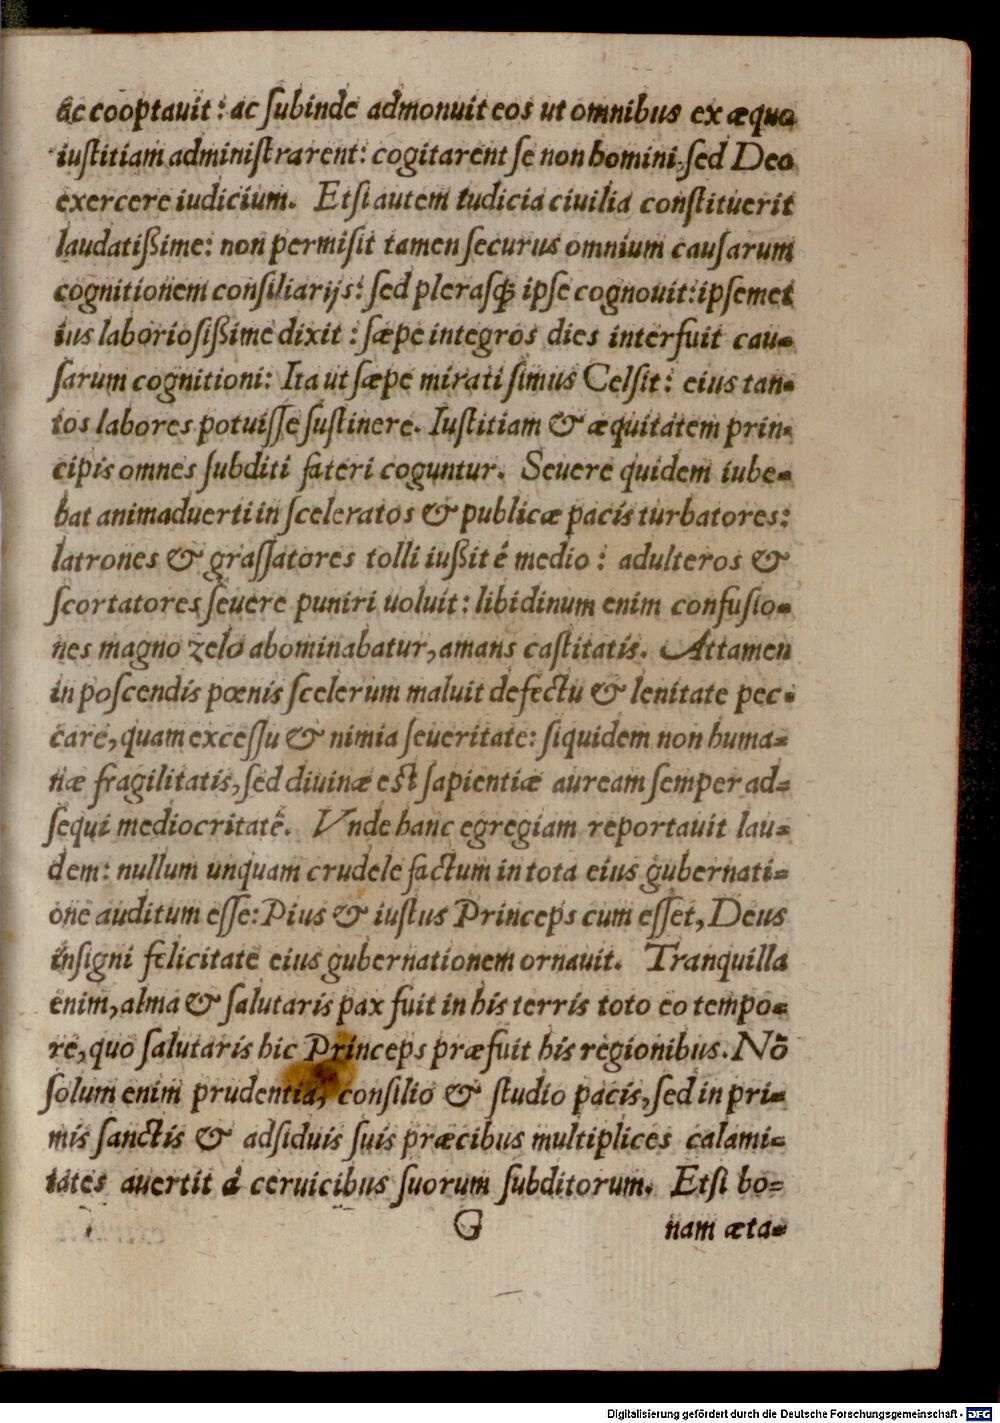 ac cooptauit: ac ſubinde admonuit eos ut omnibus ex æquo
iuſtitiam adminiſtrarent: cogitarent ſe non homini, ſed Deo
exercere iudicium. Etſi autem iudicia ciuilia conſtituerit
laudatißime: non permiſit tamen ſecurus omnium cauſarum
cognitionem conſiliarijs: ſed pleraſq́ꝫ ipſe cognouit: ipſemet
ius laborioſißime dixit: ſæpe integros dies interfuit cau-
ſarum cognitioni: Ita ut ſæpe mirati ſimus Celſit: eius tan-
tos labores potuiſſe ſuſtinere. Iuſtitiam & æquitatem prin-
cipis omnes ſubditi fateri coguntur. Seuere quidem iube-
bat animaduerti in ſceleratos & publicæ pacis turbatores:
latrones & graſſatores tolli iußit é medio: adulteros &
ſcortatores ſeuere puniri uoluit: libidinum enim confuſio-
nes magno zelo abominabatur, amans caſtitatis. Attamen
in poſcendis pœnis ſcelerum maluit defectu & lenitate pec-
care, quam exceſſu & nimia ſeueritate: ſiquidem non huma-
næ fragilitatis, ſed diuinæ eſt ſapientiæ auream ſemper ad-
ſequi mediocritatē. Vnde hanc egregiam reportauit lau-
dem: nullum unquam crudele factum in tota eius gubernati-
one auditum eſſe: Pius & iuſtus Princeps cum eſſet, Deus
inſigni felicitate eius gubernationem ornauit. Tranquilla
enim, alma & ſalutaris pax fuit in his terris toto eo tempo-
re, quo ſalutaris hic Princeps præfuit his regionibus. Nō
ſolum enim prudentia, conſilio & ſtudio pacis, ſed in pri-
mis ſanctis & adſiduis ſuis præcibus multiplices calami-
tates auertit á ceruicibus ſuorum ſubditorum. Etſi bo-
G nam æta-
Digitalisierung gefördert durch die Deutsche Forschungsgemeinschaft - DFG